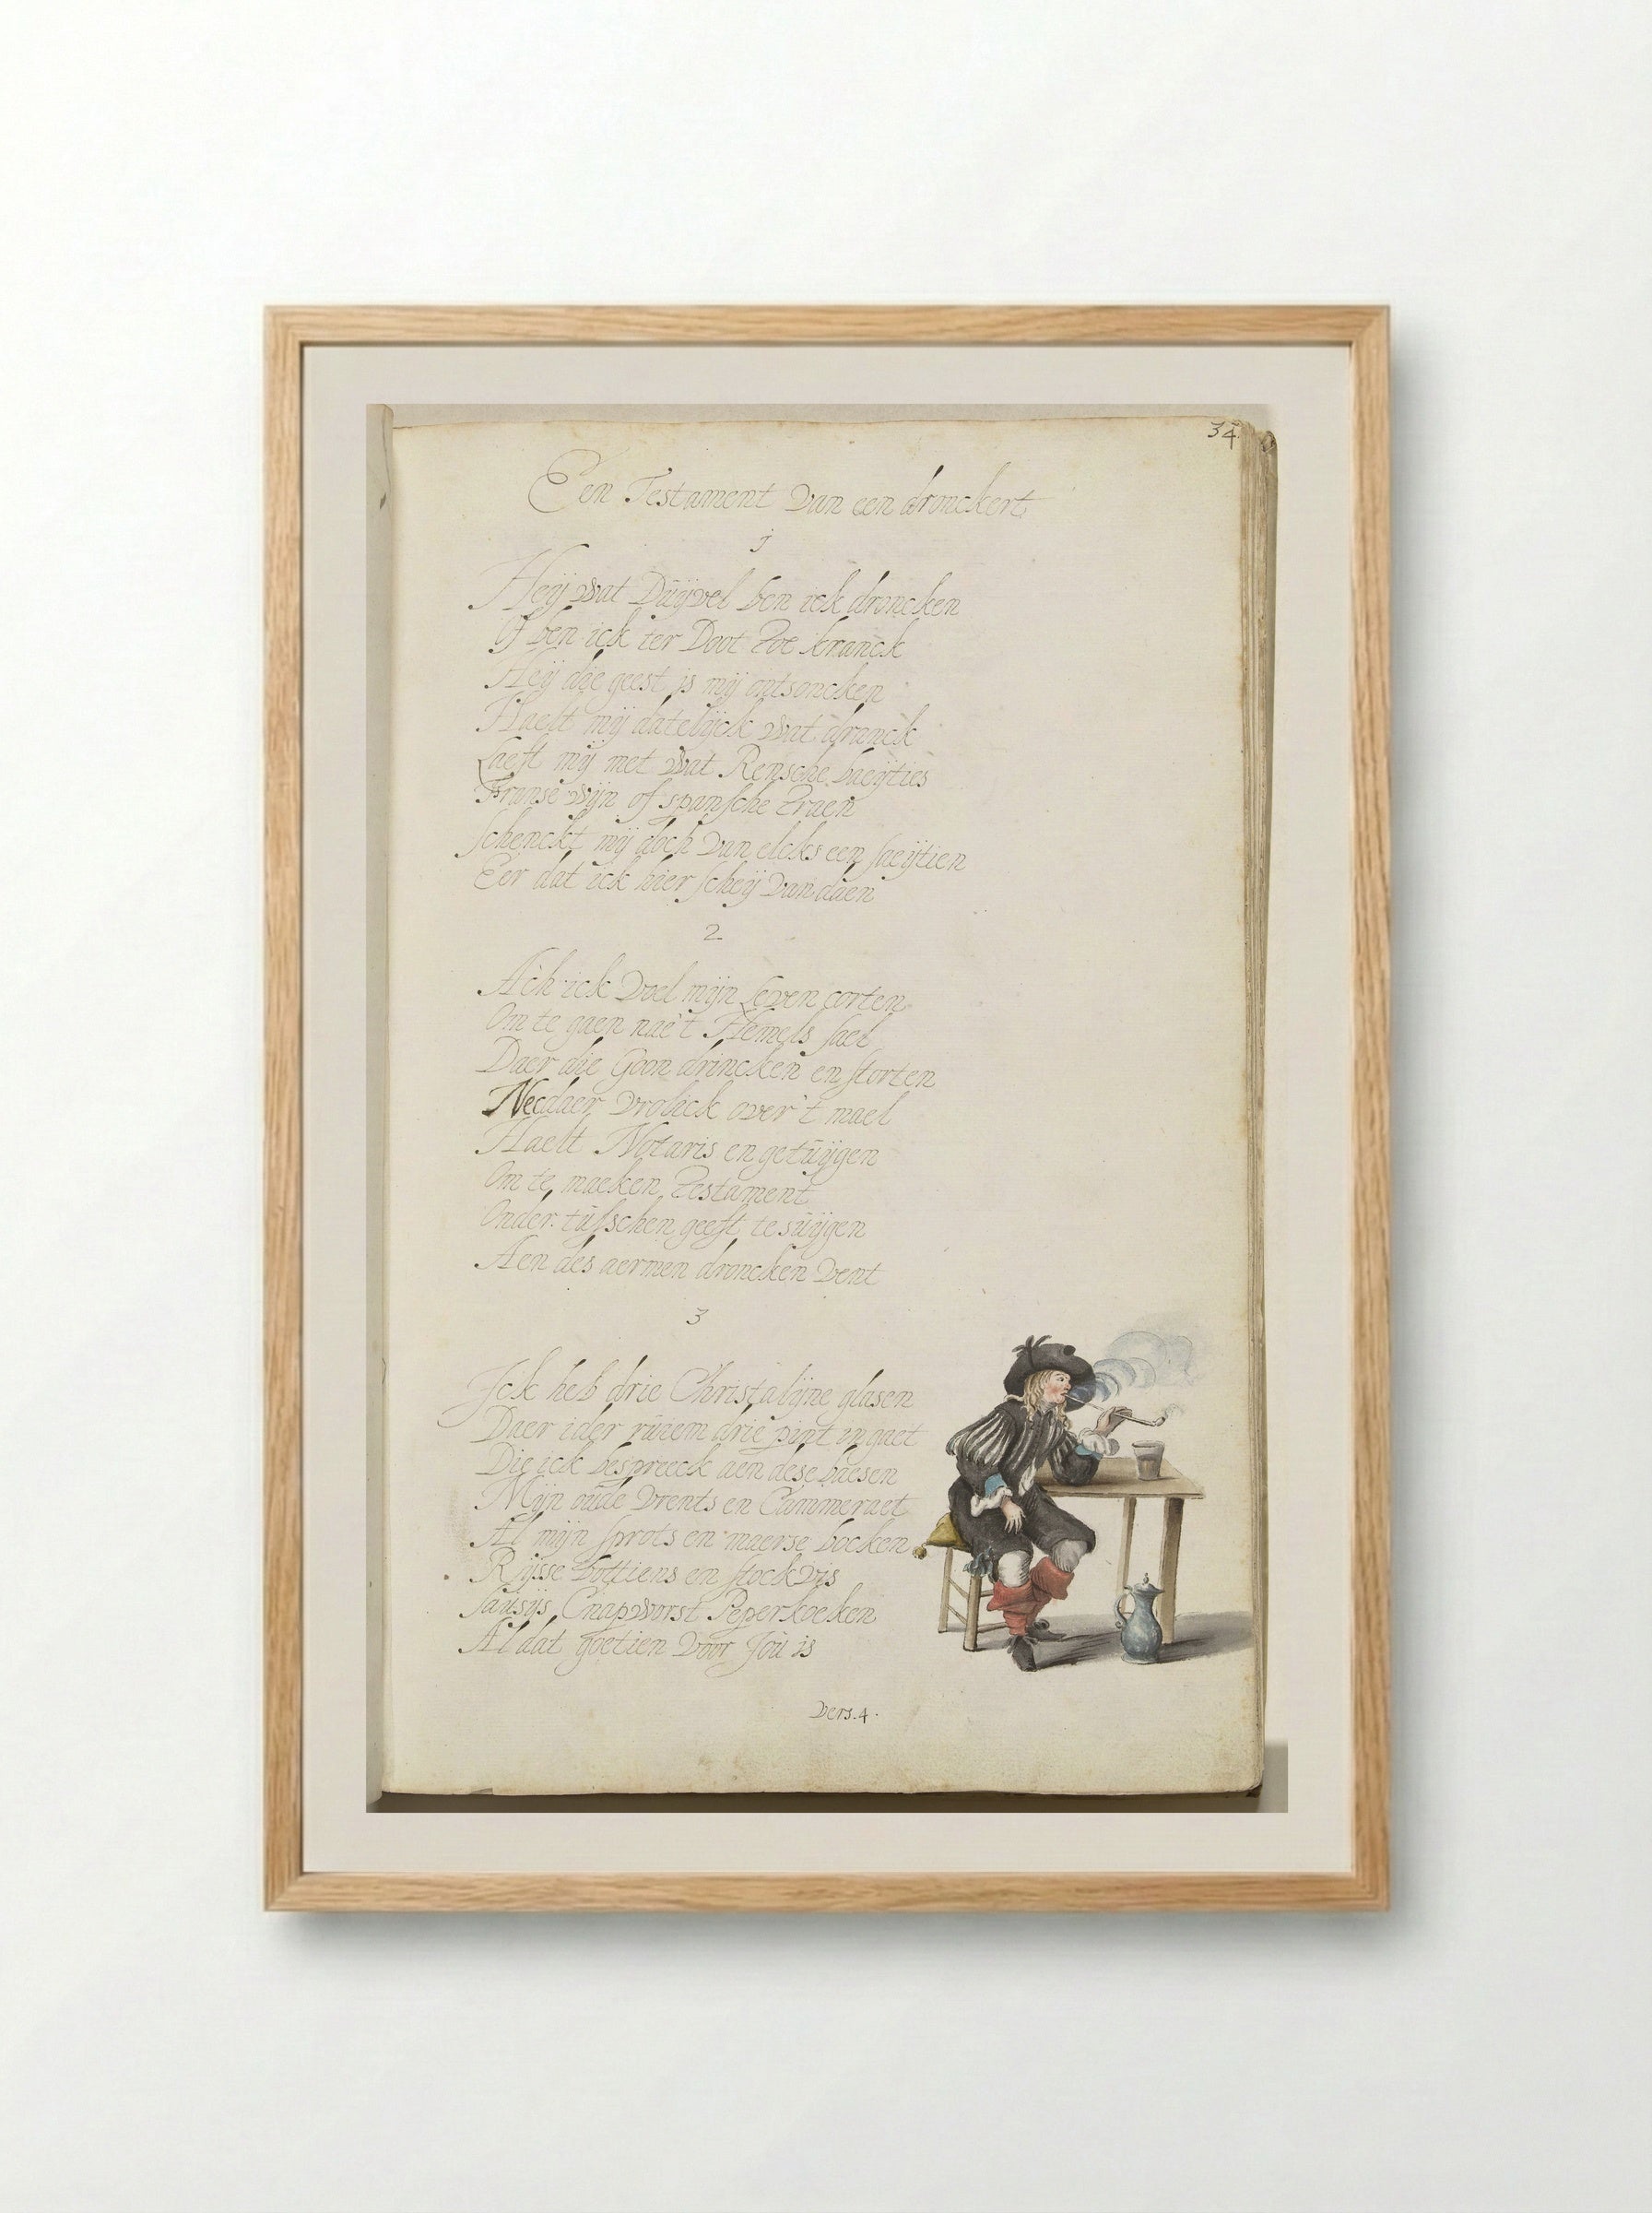 34
Een Testament van een dronckert
1
Heÿ wat Duÿvel ben ick droncken
Of ben ick ter Doot Zoe kranck
Heÿ die geest is mÿ ontsoncken
Haelt mÿ datelÿck wat dranck
Laeft mÿ met wat Rensche baeÿties
Franse wÿn of spansche Traen
schenckt mÿ doch van elcks een saeÿtien
Eer dat ick hier scheÿ van daen
2
Ach ick voel mÿn Leven corten
Om te gaen nae't Hemels sael
Daer die Goon drincken en storten
Necdaer vrolick over't mael
Haelt Notaris en getuÿgen
Om te maeken Testament
Onder tusschen geeft te suÿgen
Aen des aermen droncken vent
3
Ick heb drie Christalÿne glasen
Daer ider ruiem drie pint in gaet
Die ick bespreeck aen dese baesen
Mÿn oude vrents en Cammeraet
Al mÿn sprots en maerse bocken
Rÿsse bottiens en stockvis
sausÿs Cnapworst Peperkoeken
Al dat goetien voor Jou is
Vers. 4.